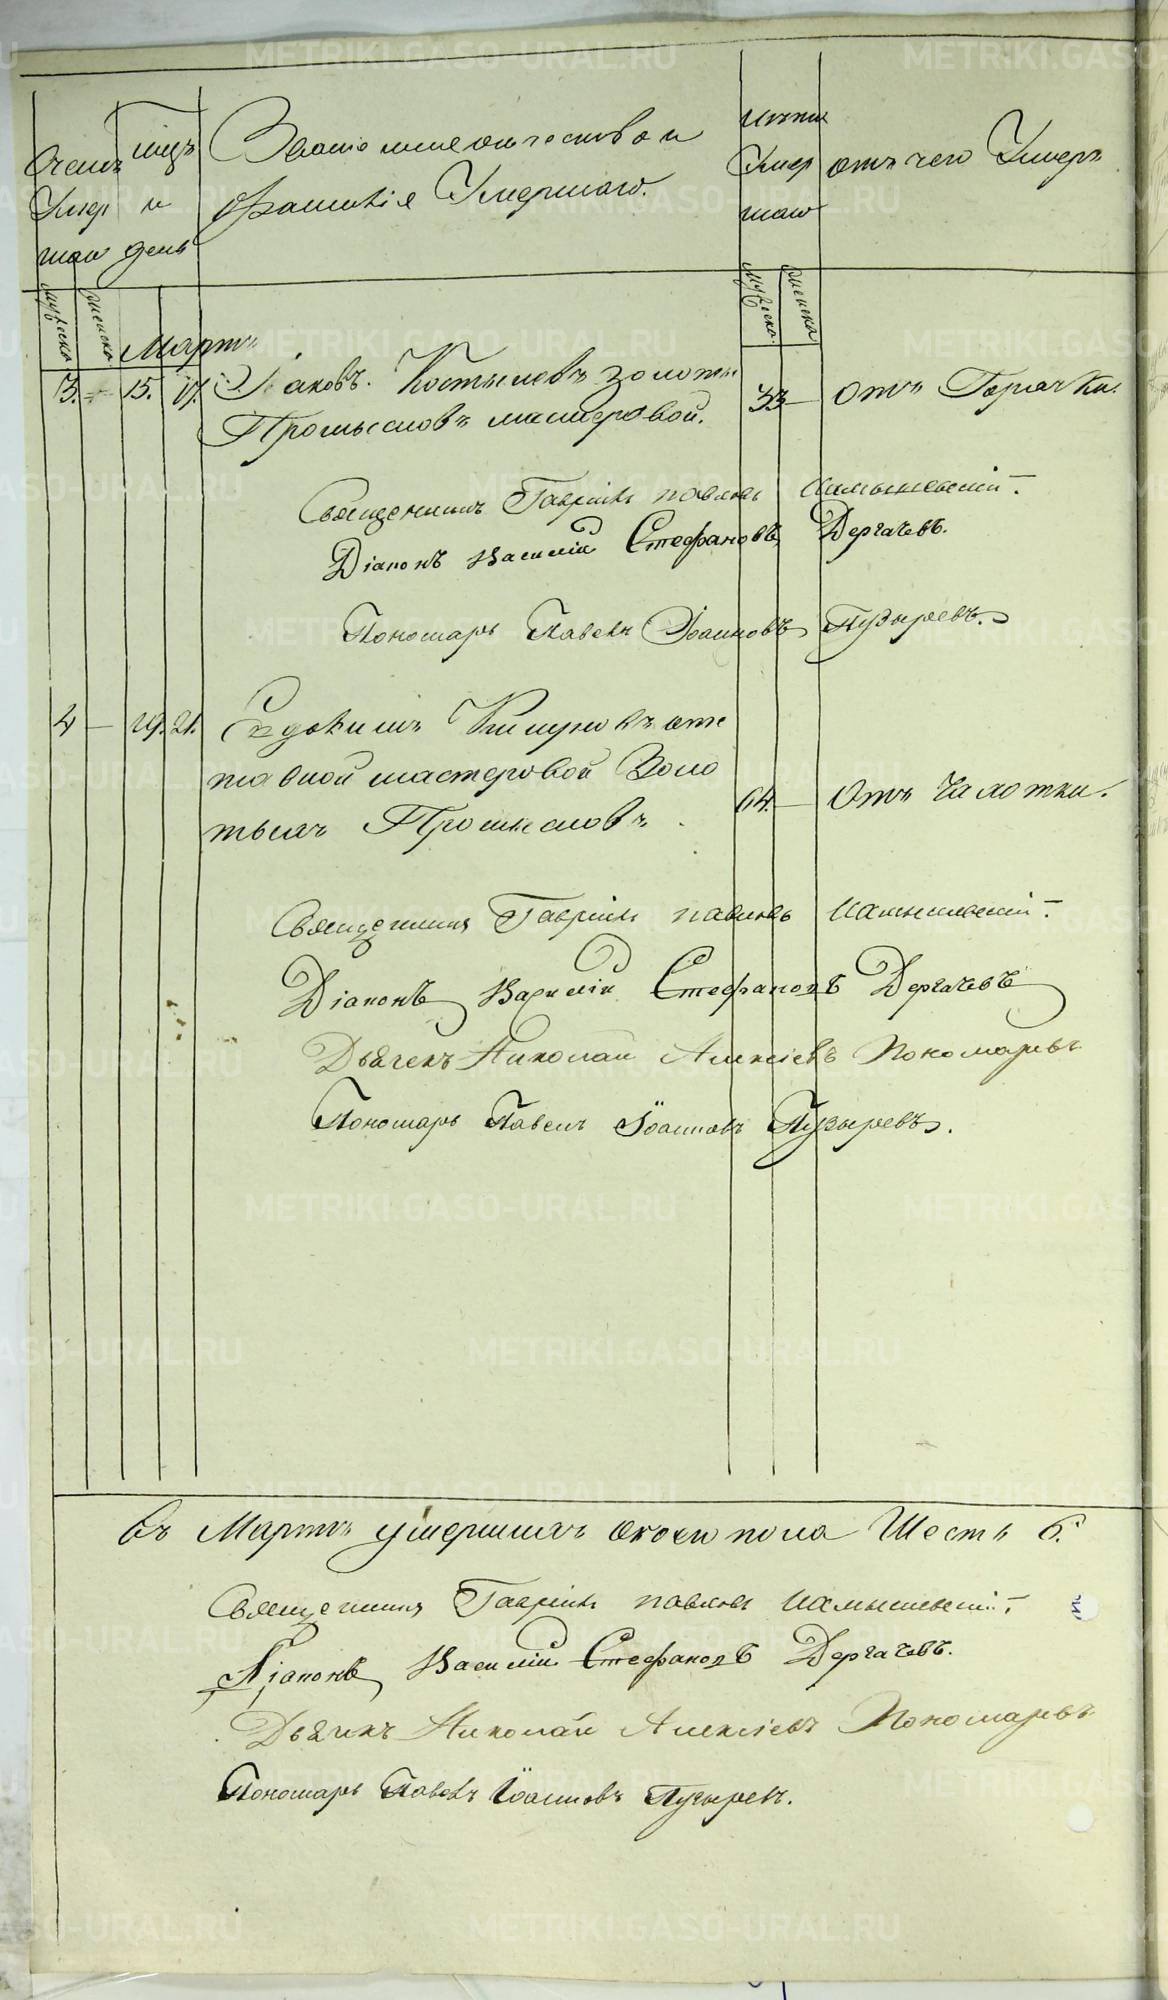 Счетъ Умер шаго
мцъ и день
Званіе имя отчество и
Фамилія Умершаго.
лѣта Умер шаго
отъ чего Умеръ
мужеска
женска
мужеска
женска
Мартъ
3. — 15. 17. Іаковъ. Костылевъ золоты 33 — отъ Горячки.
Промысловъ мастеровой.
Священникъ Гавріилъ павловъ
Діаконъ Василій Стефановъ Дергачевъ.
Пономарь Павелъ Іоанновъ Пузыревъ.
4 — 19. 21. Евдокимъ отс
тавной мастеровой Золо 64. — Отъ Чахотки.
тыхъ Промысловъ.
Священникъ Гавріилъ павловъ
Діаконъ Василій Стефановъ Дергачевъ
Дьячекъ Николай Алексіевъ Пономаревъ
Пономарь Павелъ Іоанновъ Пузыревъ.
въ Мартѣ умершихъ обоего пола Шесть 6.
Священникъ Гавріилъ павловъ
Діаконъ Василій Стефановъ Дергачевъ.
Дьячикъ Николай Алексіевъ Пономаревъ
Пономарь Павелъ Іоанновъ Пузыревъ.
METRIKI.GASO-URAL.RU